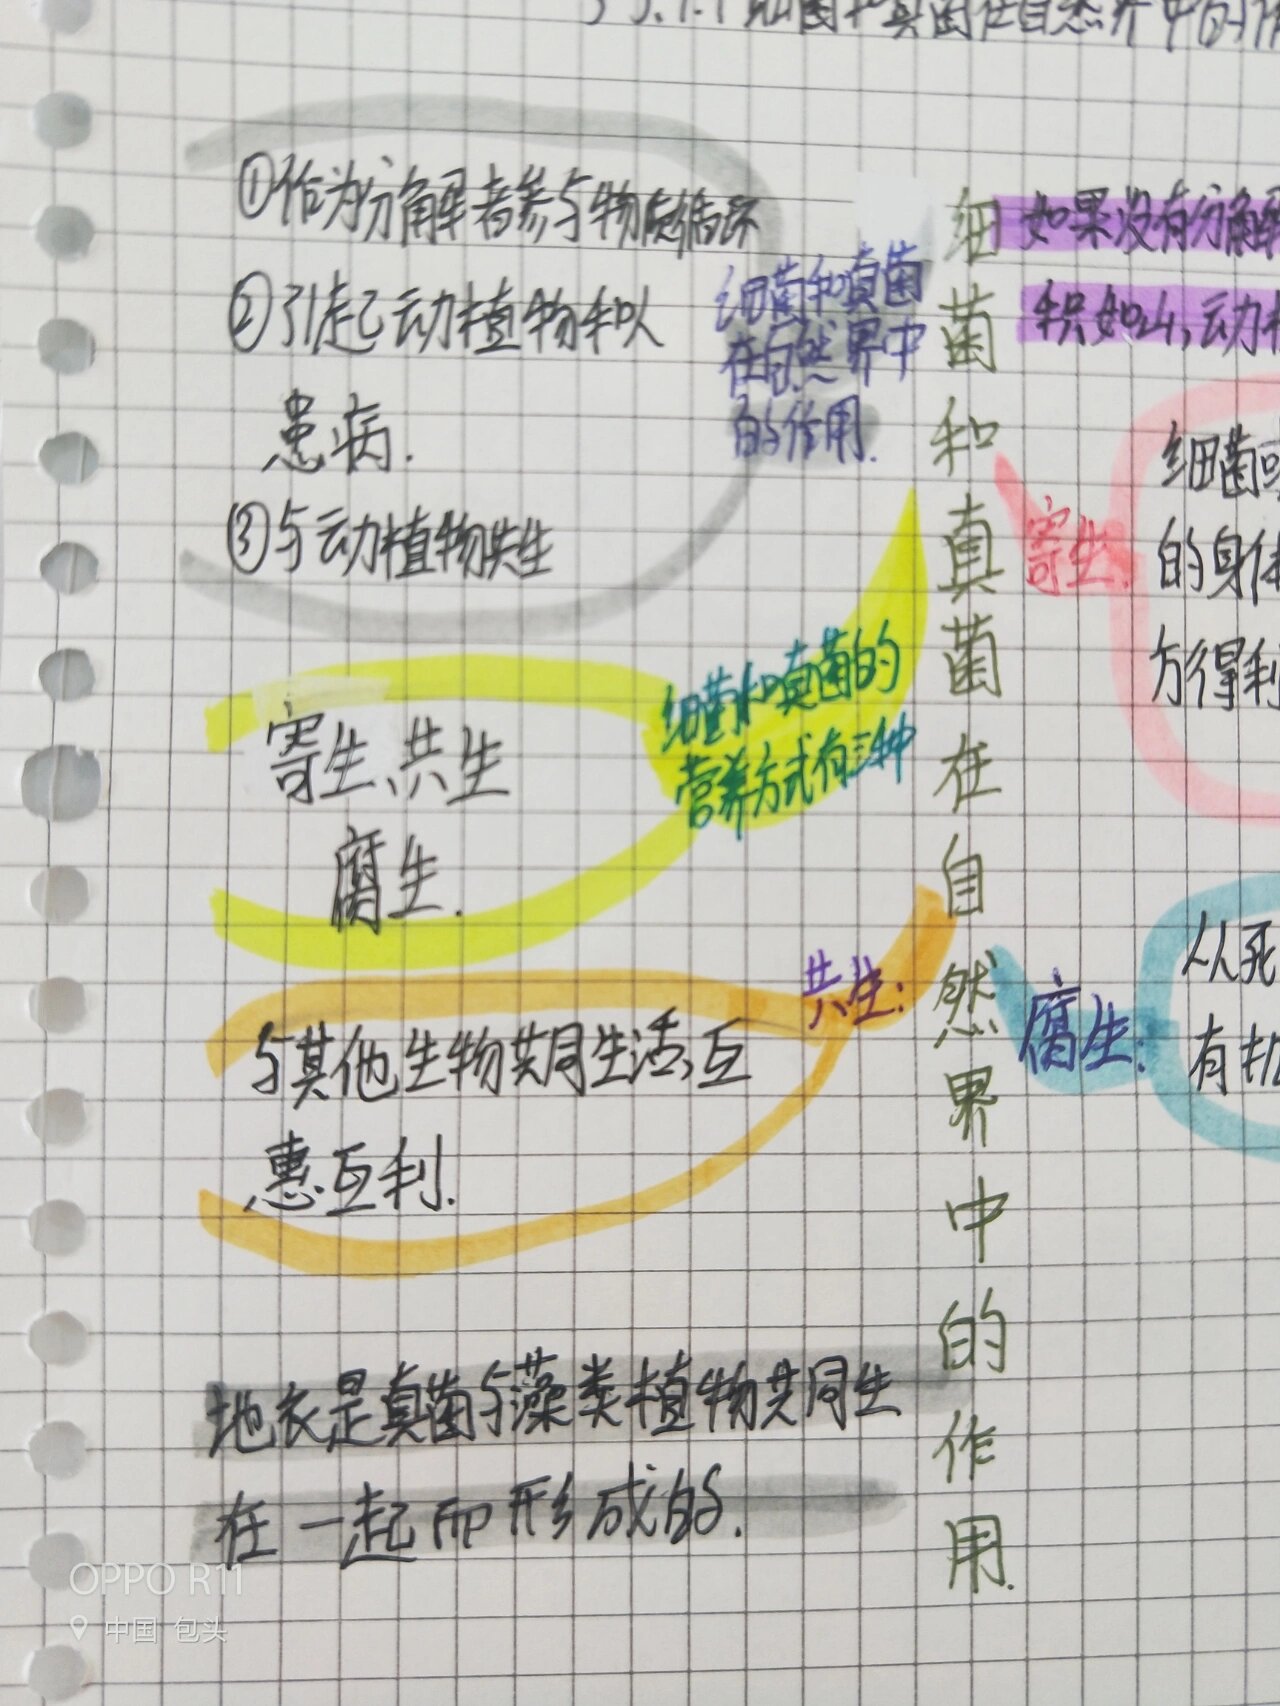 细菌和真菌在自然界中的作
①作为分解者参与物质循环
②引起动植物和人
患病.
③与动植物共生
细菌和真菌
在自然界中
的作用.
寄生、共生
腐生.
细菌和真菌的
营养方式有三种
共生:
与其他生物共同生活,互
惠互利.
地衣是真菌与藻类植物共同生
在一起而形成的.
细菌和真菌在自然界中的作用.
如果没有分解
积如山,动植
寄生:
细菌
的身体
方得利
腐生:
从死
有机
OPPO R11
中国 包头